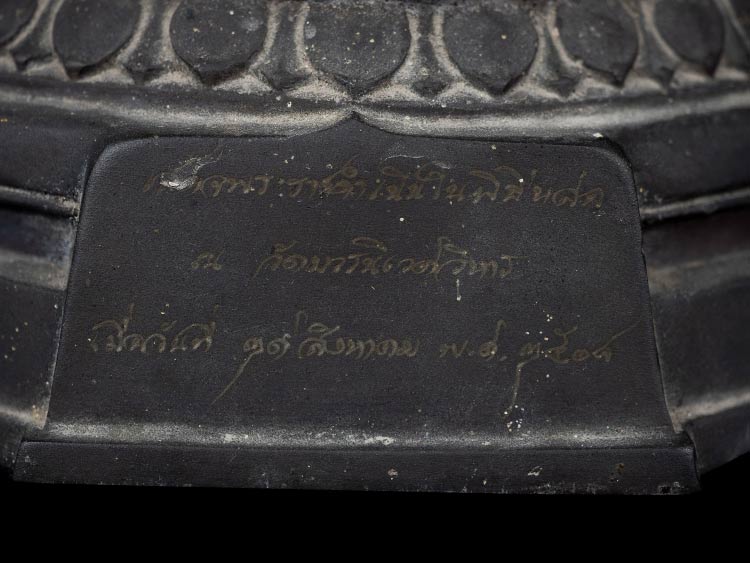 เสด็จพระราชดำเนินในพิธีหล่อ
ณ วัดบวรนิเวศวิหาร
เมื่อวันที่ ๒๙ สิงหาคม พ.ศ. ๒๕๐๘